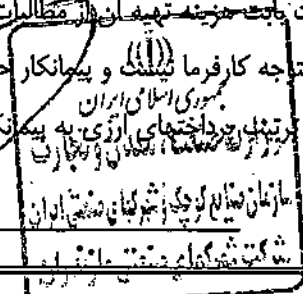 بابت هزینه تهیه آن از مطالبات
متوجه کارفرما نیست و پیمانکار
جمهوری اسلامی ایران
پرداختهای ارزی به
وزارت صنعت، معدن و تجارت
سازمان صنایع کوچک و شهرکهای صنعتی ایران
شرکت شهرکهای صنعتی مازندران